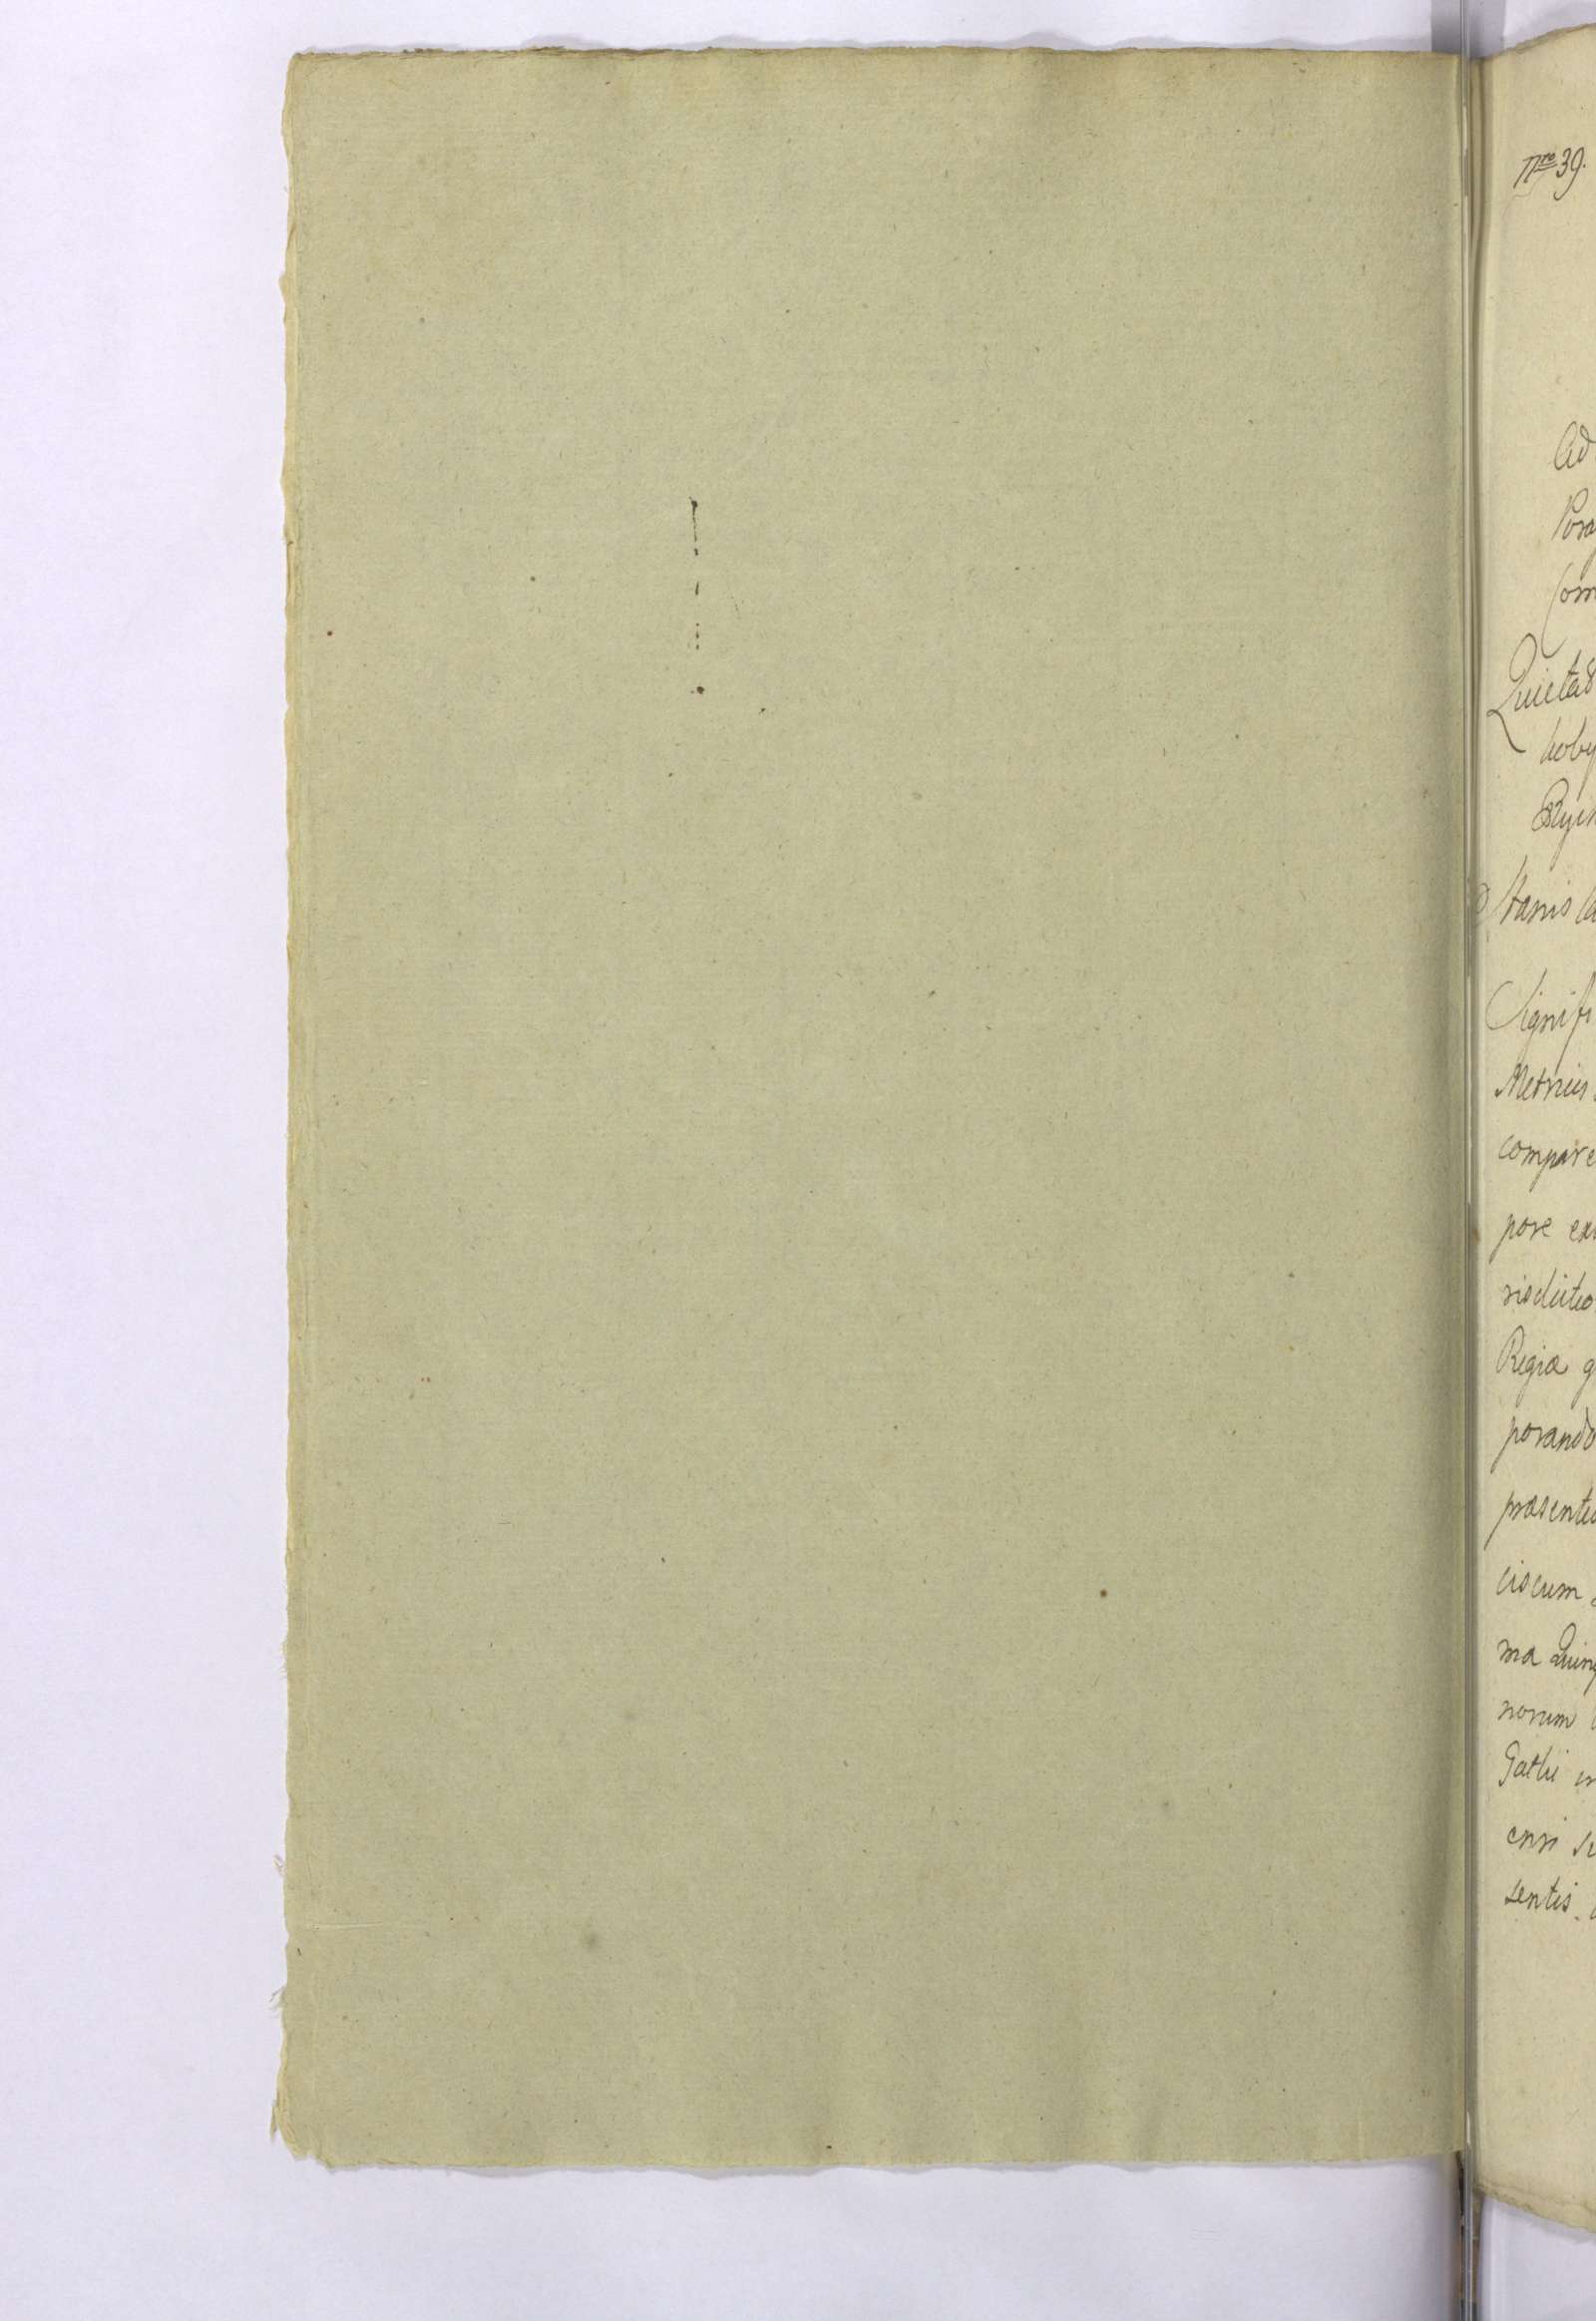 Nro 39.
Ad
Porg
Com
Quietat
koby
Rych
Stanisla
Signifi
Metrices
compare
pore exi
risdictio
Regiæ q
porando
præsente
ciscum
ma Quing
norum
Gathi in
ensi su
sentis